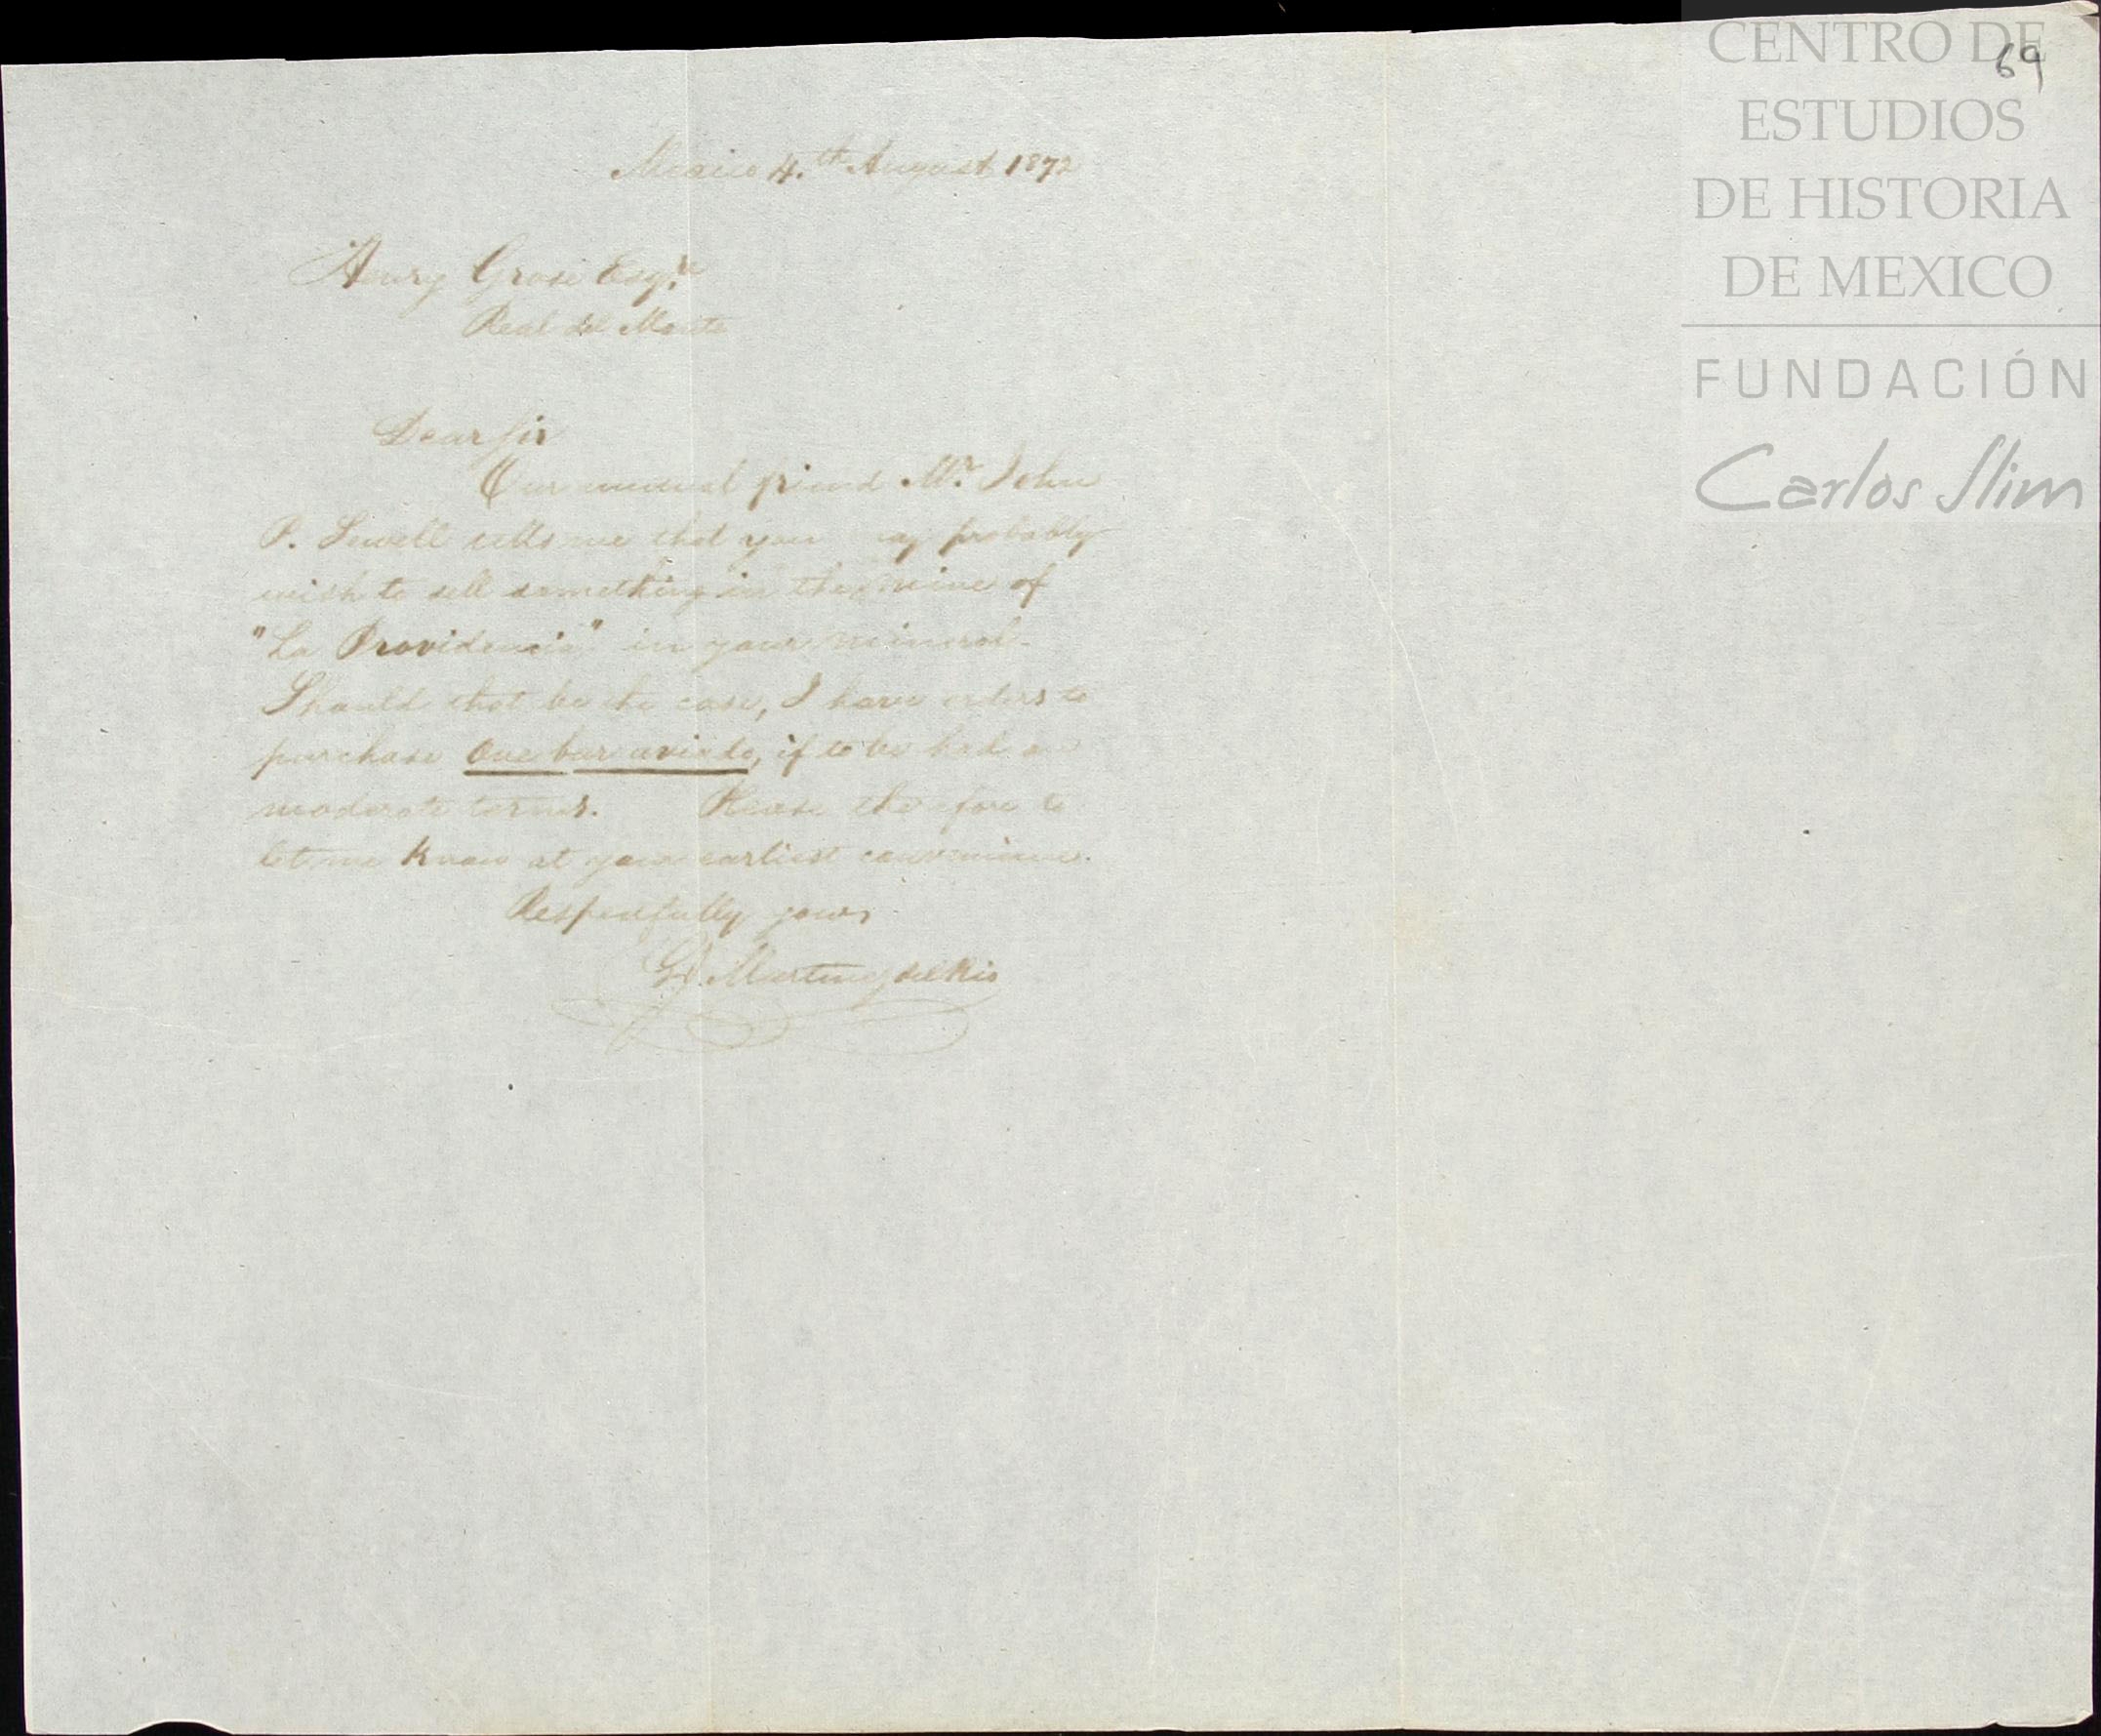 69
CENTRO DE
ESTUDIOS
DE HISTORIA
DE MEXICO
FUNDACIÓN
Carlos Slim
Mexico 4.th August 1872
Henry Grose Esqre
Real del Monte
Dear Sir
Our mutual friend Mr. John
P. Sewell tells me that you may probably
wish to sell something in the mine of
"La Providencia" in your mineral.
Should that be the case, I have orders to
purchase One bar aviada, if to be had on
moderate terms. Please therefore to
let me know at your earliest convenience.
Respectfully yours
G. Martinez del Rio